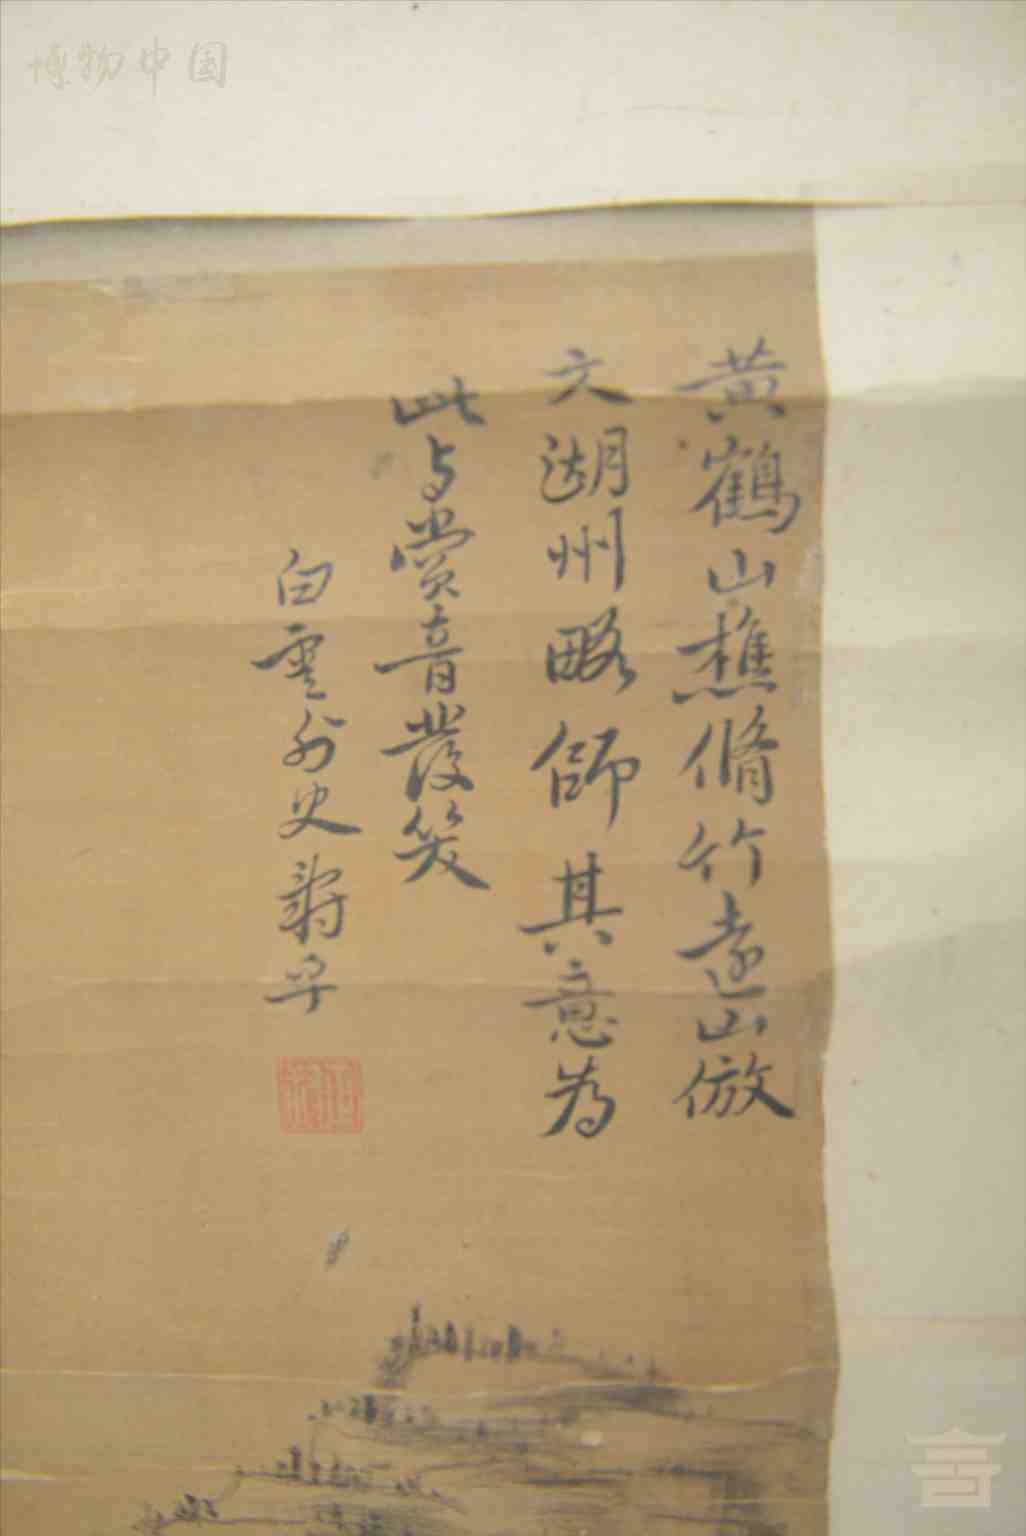 博物中国
黄鶴山樵脩竹遠山倣
文湖州略師其意為
此与賞音發笑
白雲外史壽平